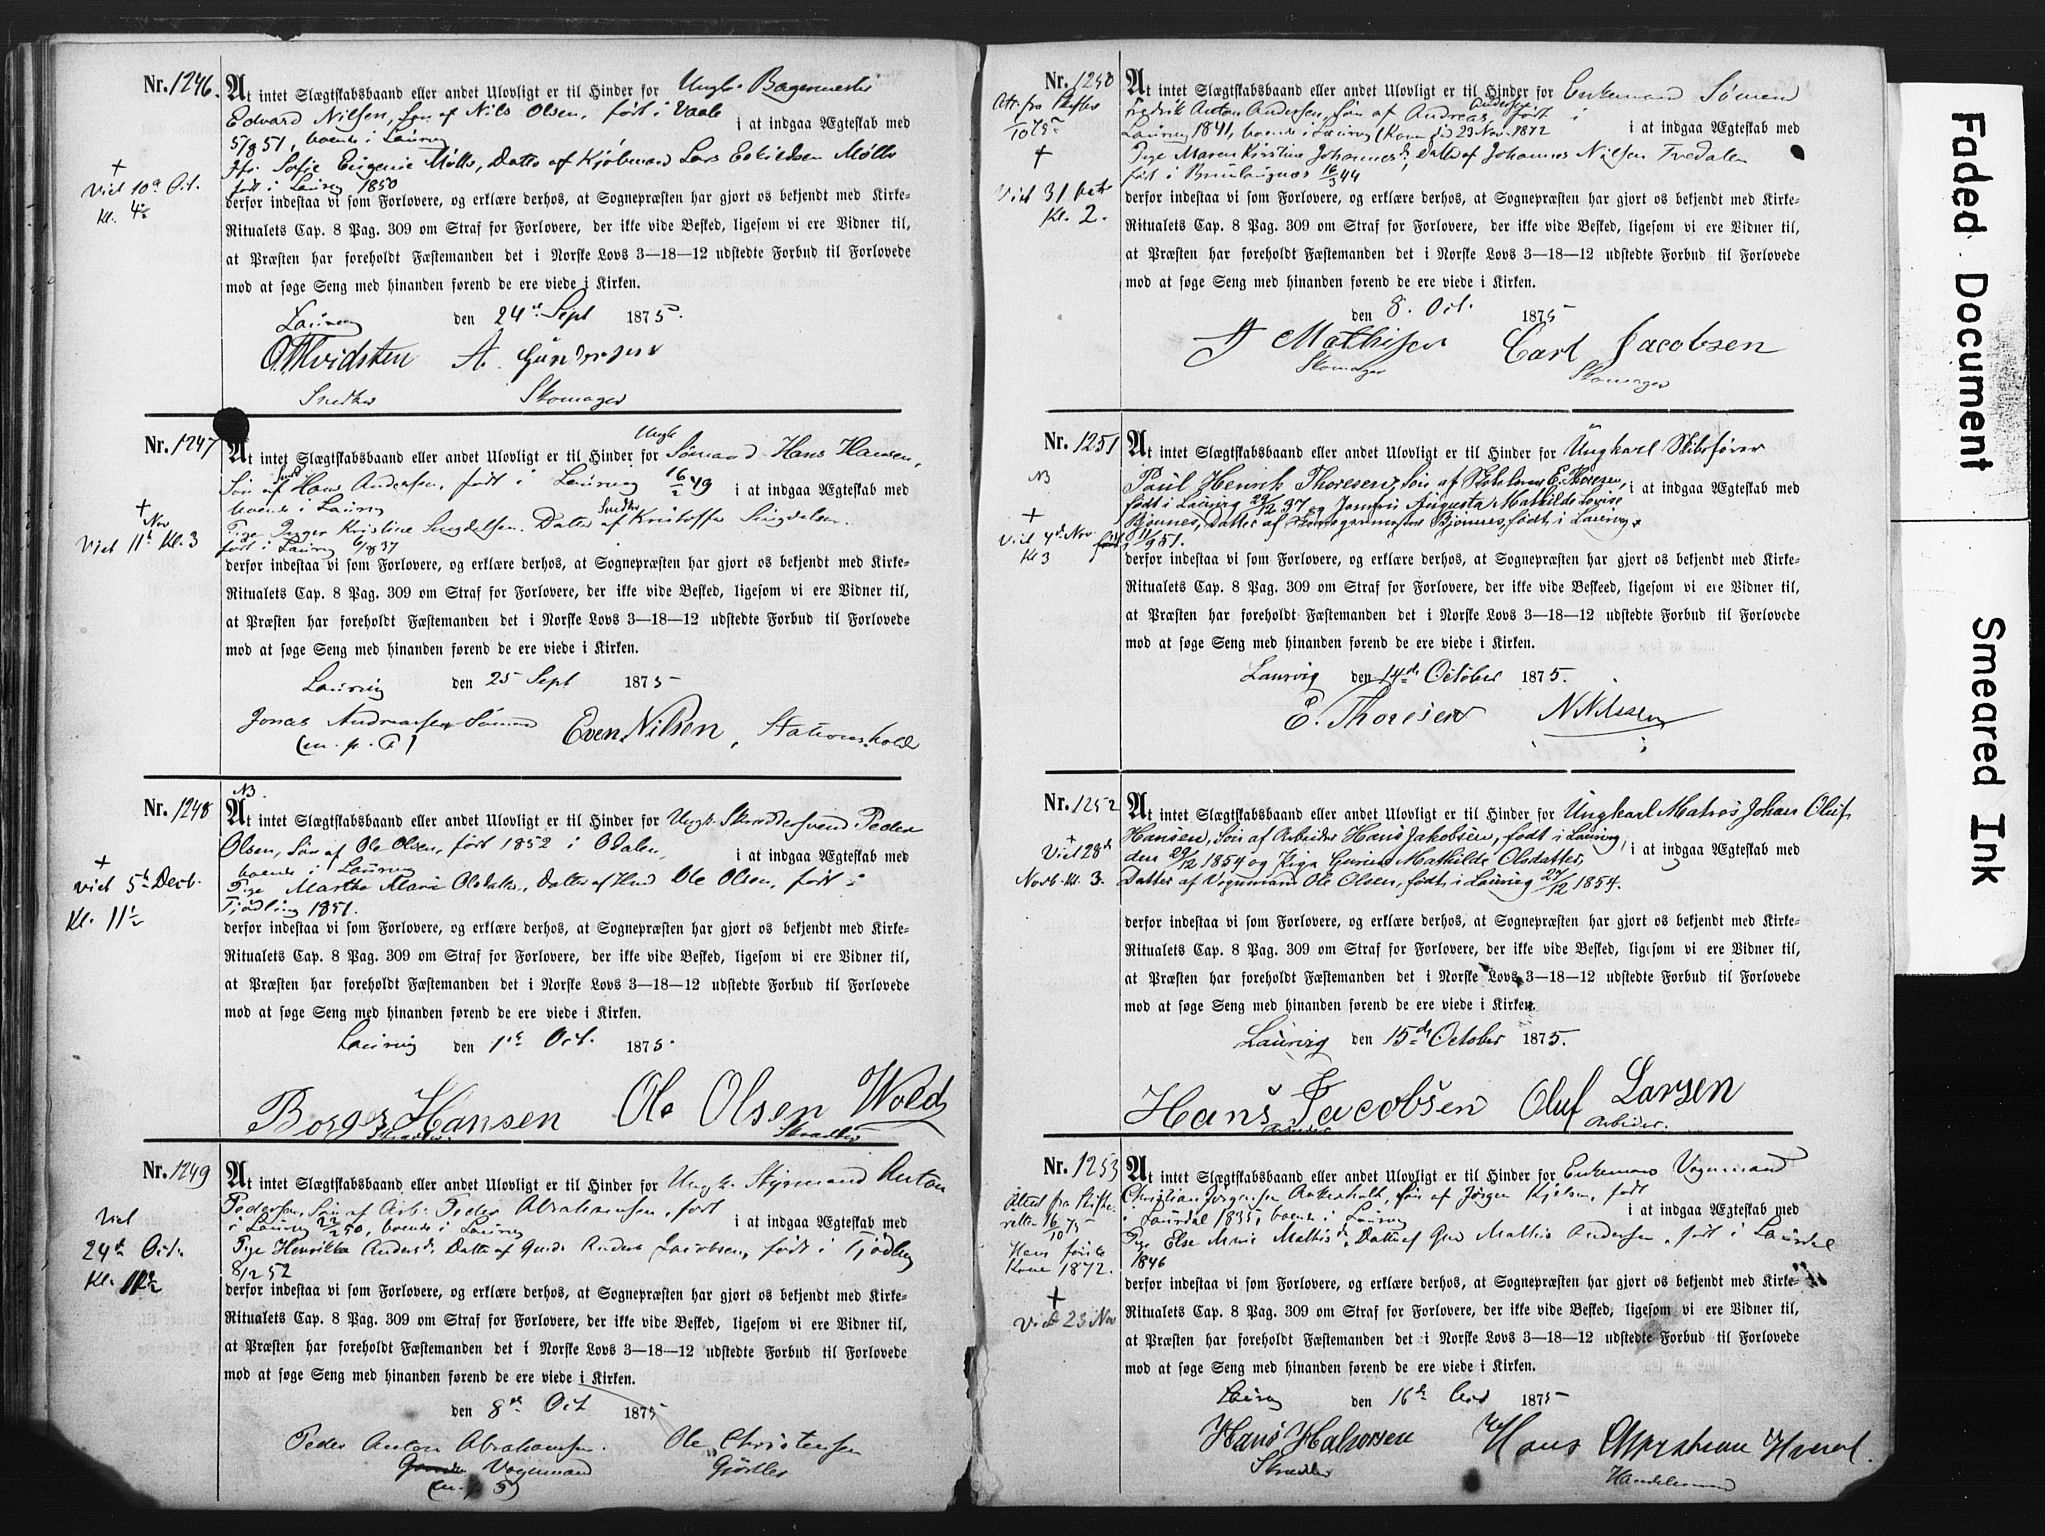 Nr. 1246.
At intet Slægtskabsbaand eller andet Ulovligt er til Hinder for Ungk. Bagermester
Edvard Nilsen, Søn af Nils Olsen, født i Vaale
5/8 51, boende i Laurvig i at indgaa Ægteskab med
Jfr. Sofie Eugenie Møller, Datter af Kjøbmand Lars Eskildsen Møller
født i Laurvig 1850
+
Viet 10de Oct.
Kl. 4½
derfor indestaa vi som Forlovere, og erklære derhos, at Sognepræsten har gjort os bekjendt med Kirke-
Ritualets Cap. 8 Pag. 309 om Straf for Forlovere, der ikke vide Besked, ligesom vi ere Vidner til,
at Præsten har foreholdt Fæstemanden det i Norske Lovs 3—18—12 udstedte Forbud til Forlovede
mod at søge Seng med hinanden førend de ere viede i Kirken.
Laurvig den 24de Sept 1875.
O. Tvidsten A. Gundersen
Snedker Skomager
Nr. 1247
At intet Slægtskabsbaand eller andet Ulovligt er til Hinder for Ungk. Sømand Hans Hansen,
Søn af Hans Andersen, født i Laurvig 16/2 49 i at indgaa Ægteskab med
boende i Laurvig
Pige Kristine Datter af Snedker Kristoffer
født i Laurvig 6/8 37
+
Nov
Viet 11te Kl. 3
derfor indestaa vi som Forlovere, og erklære derhos, at Sognepræsten har gjort os bekjendt med Kirke-
Ritualets Cap. 8 Pag. 309 om Straf for Forlovere, der ikke vide Besked, ligesom vi ere Vidner til,
at Præsten har foreholdt Fæstemanden det i Norske Lovs 3—18—12 udstedte Forbud til Forlovede
mod at søge Seng med hinanden førend de ere viede i Kirken.
Laurvig den 25 Sept 1875
Jonas Andreassen Sømand Even Nilsen, Stationshold
(m. p. P)
Nr. 1248
NB.
At intet Slægtskabsbaand eller andet Ulovligt er til Hinder for Ungk. Skræddersvend Peder
Olsen, Søn af Ole Olsen, født 1852 i Odalen, i at indgaa Ægteskab med
boende i Laurvig
Pige Marthe Marie Olsdatter, Datter af Ole Olsen, født i
Tjødling 1851.
+
viet 5te Decb.
Kl. 11½
derfor indestaa vi som Forlovere, og erklære derhos, at Sognepræsten har gjort os bekjendt med Kirke-
Ritualets Cap. 8 Pag. 309 om Straf for Forlovere, der ikke vide Besked, ligesom vi ere Vidner til,
at Præsten har foreholdt Fæstemanden det i Norske Lovs 3—18—12 udstedte Forbud til Forlovede
mod at søge Seng med hinanden førend de ere viede i Kirken.
Laurvig den 1ste Oct. 1875.
Borger Hansen Ole Olsen Wold
Skrædder Skrædder
Nr. 1249
At intet Slægtskabsbaand eller andet Ulovligt er til Hinder for Ungk. Styrmand Anton
Pedersen, Søn af Arb. Peder Abrahamsen, født
i Laurvig 22/2 50, boende i Laurvig i at indgaa Ægteskab med
Pige Henrikke Andersdr. Datter af Anders Jacobsen, født i Tjødling
8/12 52
Viet
24de Oct.
Kl. 11½
derfor indestaa vi som Forlovere, og erklære derhos, at Sognepræsten har gjort os bekjendt med Kirke-
Ritualets Cap. 8 Pag. 309 om Straf for Forlovere, der ikke vide Besked, ligesom vi ere Vidner til,
at Præsten har foreholdt Fæstemanden det i Norske Lovs 3—18—12 udstedte Forbud til Forlovede
mod at søge Seng med hinanden førend de ere viede i Kirken.
den 8de Oct 1875
Peder Anton Abrahamsen. Ole Christensen
Vognmand Gjørtler
Nr. 1250
At intet Slægtskabsbaand eller andet Ulovligt er til Hinder for Enkemand Sømand
Fredrik Anton Andersen, Søn af Andreas Andersen født i
Laurvig 1841, boende i Laurvig (Kone død 29 Nov. 1872 i at indgaa Ægteskab med
Pige Maren Kirstine Johannesdr, Datter af Johannes Nilsen Tvedalen
født i Brunlangnæs 16/3 44
Att. fra Skifter
/10 75
+
Viet 31 Octr
Kl. 2.
derfor indestaa vi som Forlovere, og erklære derhos, at Sognepræsten har gjort os bekjendt med Kirke-
Ritualets Cap. 8 Pag. 309 om Straf for Forlovere, der ikke vide Besked, ligesom vi ere Vidner til,
at Præsten har foreholdt Fæstemanden det i Norske Lovs 3—18—12 udstedte Forbud til Forlovede
mod at søge Seng med hinanden førend de ere viede i Kirken.
den 8. Oct. 1875
Mathisen Carl Jacobsen
Skomager Skomager
Nr. 1251
At intet Slægtskabsbaand eller andet Ulovligt er til Hinder for Ungkarl Skibsfører
Paul Henrik Thoresen, Søn af E. Thoresen,
født i Laurvig 29/12 37 og Jomfru Augusta Mathilde Lovise i at indgaa Ægteskab med
Bjønnes, Datter af Bjønnes, født i Laurvig
11/9 51.
NB
+
Viet 4de Nov
Kl 3
derfor indestaa vi som Forlovere, og erklære derhos, at Sognepræsten har gjort os bekjendt med Kirke-
Ritualets Cap. 8 Pag. 309 om Straf for Forlovere, der ikke vide Beskeed, ligesom vi ere Vidner til,
at Præsten har foreholdt Fæstemanden det i Norske Lovs 3—18—12 udstedte Forbud til Forlovede
mod at søge Seng med hinanden førend de ere viede i Kirken.
Laurvig den 14de October 1875.
E. Thoresen N Nilssen
Nr. 1252
At intet Slægtskabsbaand eller andet Ulovligt er til Hinder for Ungkarl Matros Johan Oluf
Hansen, Søn af Arbeider Hans Jakobsen, født i Laurvig,
den 29/12 1854 og Pige Mathilde Olsdatter, i at indgaa Ægteskab med
Datter af Vognmand Ole Olsen, født i Laurvig 27/12 1854.
+
Viet 28de
Novb. Kl. 3.
derfor indestaa vi som Forlovere, og erklære derhos, at Sognepræsten har gjort os bekjendt med Kirke-
Ritualets Cap. 8 Pag. 309 om Straf for Forlovere, der ikke vide Besked, ligesom vi ere Vidner til,
at Præsten har foreholdt Fæstemanden det i Norske Lovs 3—18—12 udstedte Forbud til Forlovede
mod at søge Seng med hinanden førend de ere viede i Kirken.
Laurvig den 15de October 1875.
Hans Jacobsen Oluf Larsen
Arbeider Arbeider.
Nr. 1253
At intet Slægtskabsbaand eller andet Ulovligt er til Hinder for Enkemand Vognmand
Christian Jørgensen Ankerholt, Søn af Jørgen Kjølsen, født
i Laurdal 1835, boende i Laurvig i at indgaa Ægteskab med
Pige Else Marie Mathisdr. Datter af Mathis Andersen, født i Laurdal
1846
Attest fra Skifte-
retten 16/10 75
Hans første
Kone 1872.
+
Viet 23 Nov
derfor indestaa vi som Forlovere, og erklære derhos, at Sognepræsten har gjort os bekjendt med Kirke-
Ritualets Cap. 8 Pag. 309 om Straf for Forlovere, der ikke vide Besked, ligesom vi ere Vidner til,
at Præsten har foreholdt Fæstemanden det i Norske Lovs 3—18—12 udstedte Forbud til Forlovede
mod at søge Seng med hinanden førend de ere viede i Kirken.
Laurvig den 16de Oct 1875
Hans Halvorsen Hans
Skrædder Handelsmand
Faded Document
Smeared Ink